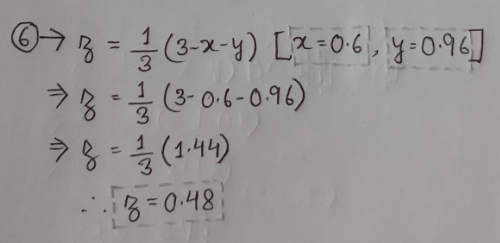 ⑥→ z = 1/3 (3-x-y) [x=0.6, y=0.96]
⇒ z = 1/3 (3-0.6-0.96)
⇒ z = 1/3 (1.44)
∴ z = 0.48